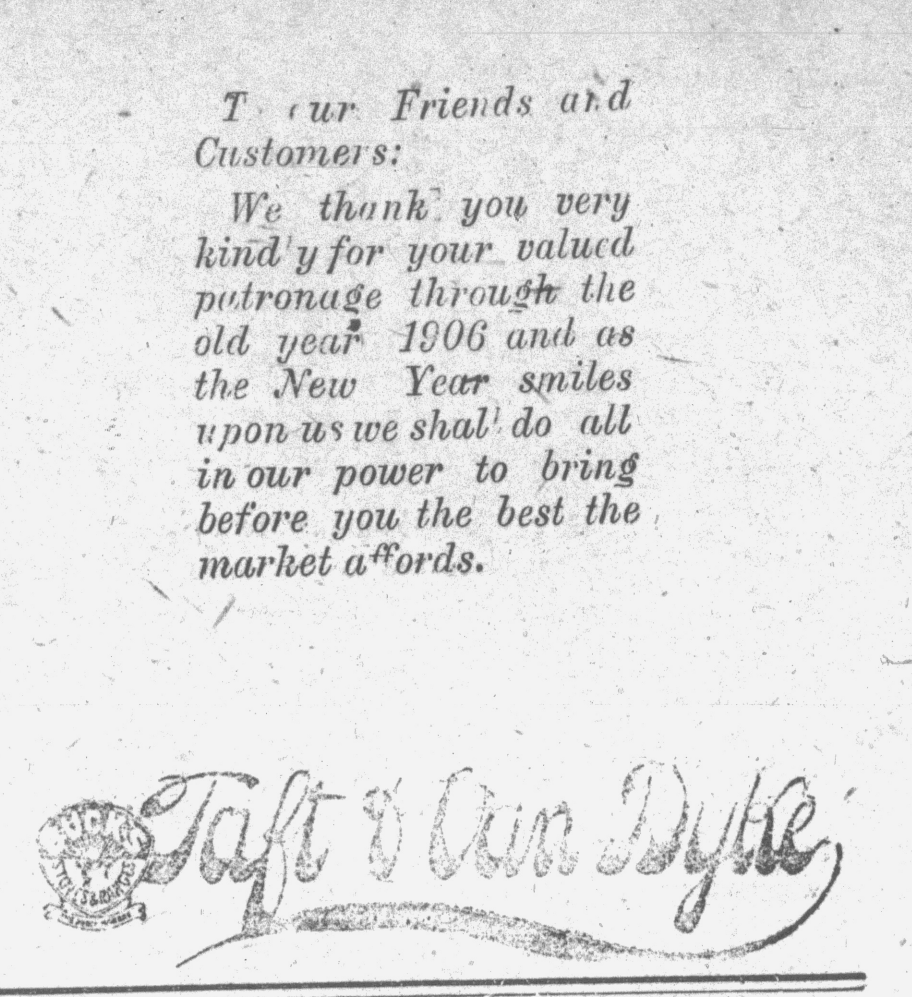 To our Friends and
Customers:
We thank you very
kindly for your valued
patronage through the
old year 1906 and as
the New Year smiles
upon us we shall do all
in our power to bring
before you the best the
market affords.
BUCK'S
STOVES & RANGES
Taft & Van Dyke